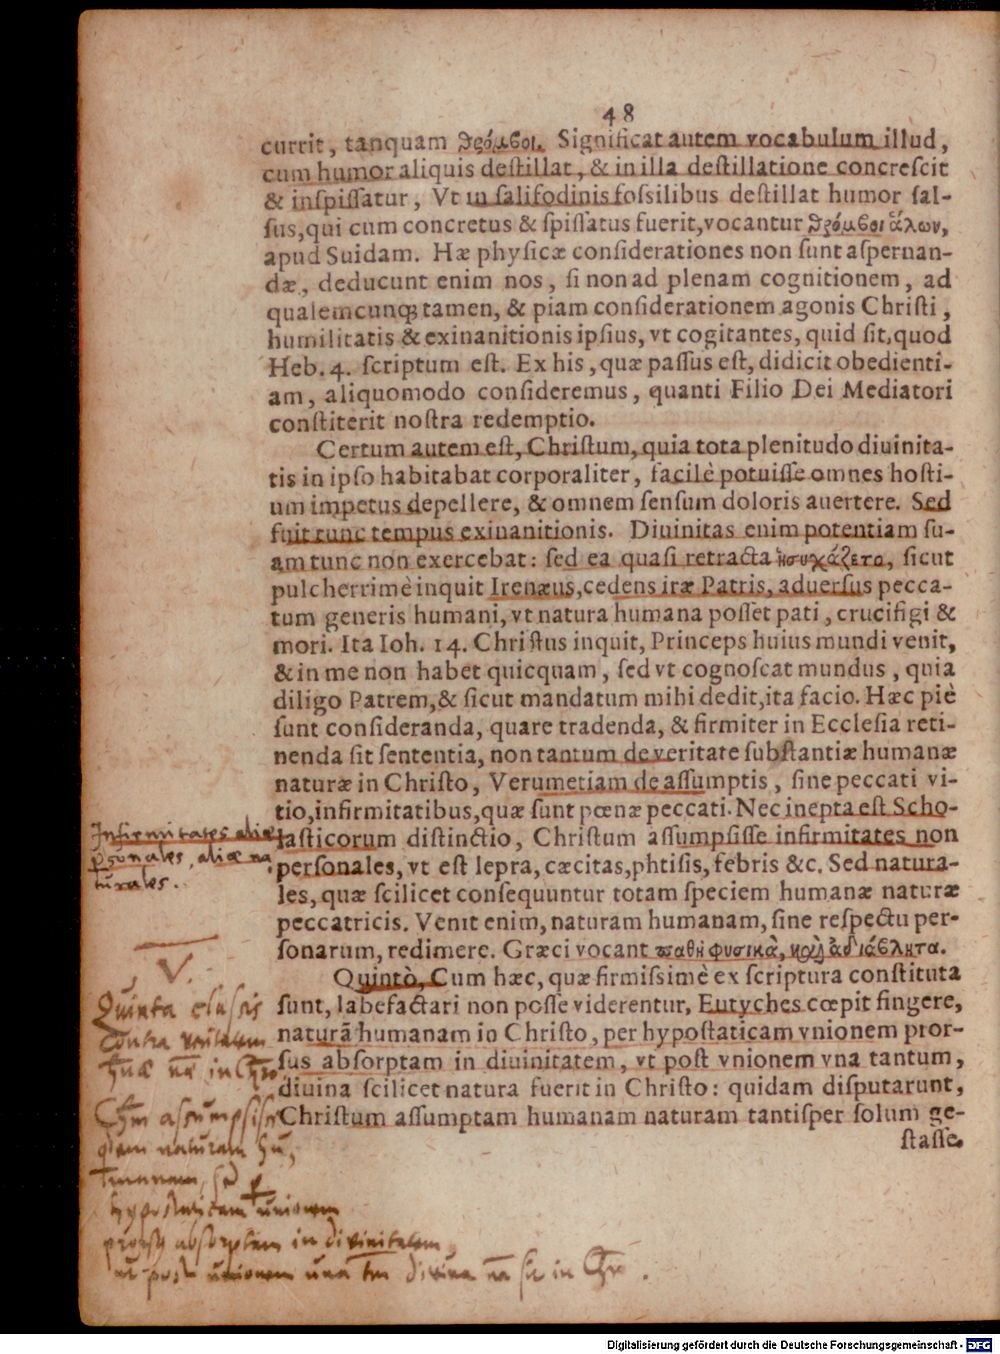 48
currit, tanquam θρόμβοι. Significat autem vocabulum illud,
cum humor aliquis destillat, & in illa destillatione concrescit
& inspissatur, Vt in salifodinis fossilibus destillat humor sal-
sus, qui cum concretus & spissatus fuerit, vocantur θρόμβοι ἅλων,
apud Suidam. Hæ physicæ considerationes non sunt aspernan-
dæ, deducunt enim nos, si non ad plenam cognitionem, ad
qualemcunq; tamen, & piam considerationem agonis Christi,
humilitatis & exinanitionis ipsius, vt cogitantes, quid sit, quod
Heb. 4. scriptum est. Ex his, quæ passus est, didicit obedienti-
am, aliquomodo consideremus, quanti Filio Dei Mediatori
constiterit nostra redemptio.
Certum autem est, Christum, quia tota plenitudo diuinita-
tis in ipso habitabat corporaliter, facilè potuisse omnes hosti-
um impetus depellere, & omnem sensum doloris auertere. Sed
fuit tunc tempus exinanitionis. Diuinitas enim potentiam su-
am tunc non exercebat: sed ea quasi retracta ἡσυχάζετο, sicut
pulcherrimè inquit Irenæus, cedens iræ Patris, aduersus pecca-
tum generis humani, vt natura humana posset pati, crucifigi &
mori. Ita Ioh. 14. Christus inquit, Princeps huius mundi venit,
& in me non habet quicquam, sed vt cognoscat mundus, quia
diligo Patrem, & sicut mandatum mihi dedit, ita facio. Hæc piè
sunt consideranda, quare tradenda, & firmiter in Ecclesia reti-
nenda sit sententia, non tantum de veritate substantiæ humanæ
naturæ in Christo, Verumetiam de assumptis, sine peccati vi-
tio, infirmitatibus, quæ sunt pœnæ peccati. Nec inepta est Scho-
lasticorum distinctio, Christum assumpsisse infirmitates non
personales, vt est lepra, cæcitas, phtisis, febris &c. Sed natura-
les, quæ scilicet consequuntur totam speciem humanæ naturæ
peccatricis. Venit enim, naturam humanam, sine respectu per-
sonarum, redimere. Græci vocant παθη φυσικὰ, καὶ ἀδιάβλητα.
Quintò, Cum hæc, quæ firmissimè ex scriptura constituta
sunt, labefactari non posse viderentur, Eutyches cœpit fingere,
naturā humanam in Christo, per hypostaticam vnionem pror-
sus absorptam in diuinitatem, vt post vnionem vna tantum,
diuina scilicet natura fuerit in Christo: quidam disputarunt,
Christum assumptam humanam naturam tantisper solum ge-
stasse.
Infirmitates aliæ
personales, aliæ na
turales.
V.
Quinta elusis
contra veritatem
in Chro
Chm assumpsisse
naturam hu,
manam, sed p
hypostaticam unionem
prorsus absorptam in divinitatem,
ut post unionem una tm divina nā sit in Chro.
Digitalisierung gefördert durch die Deutsche Forschungsgemeinschaft - DFG